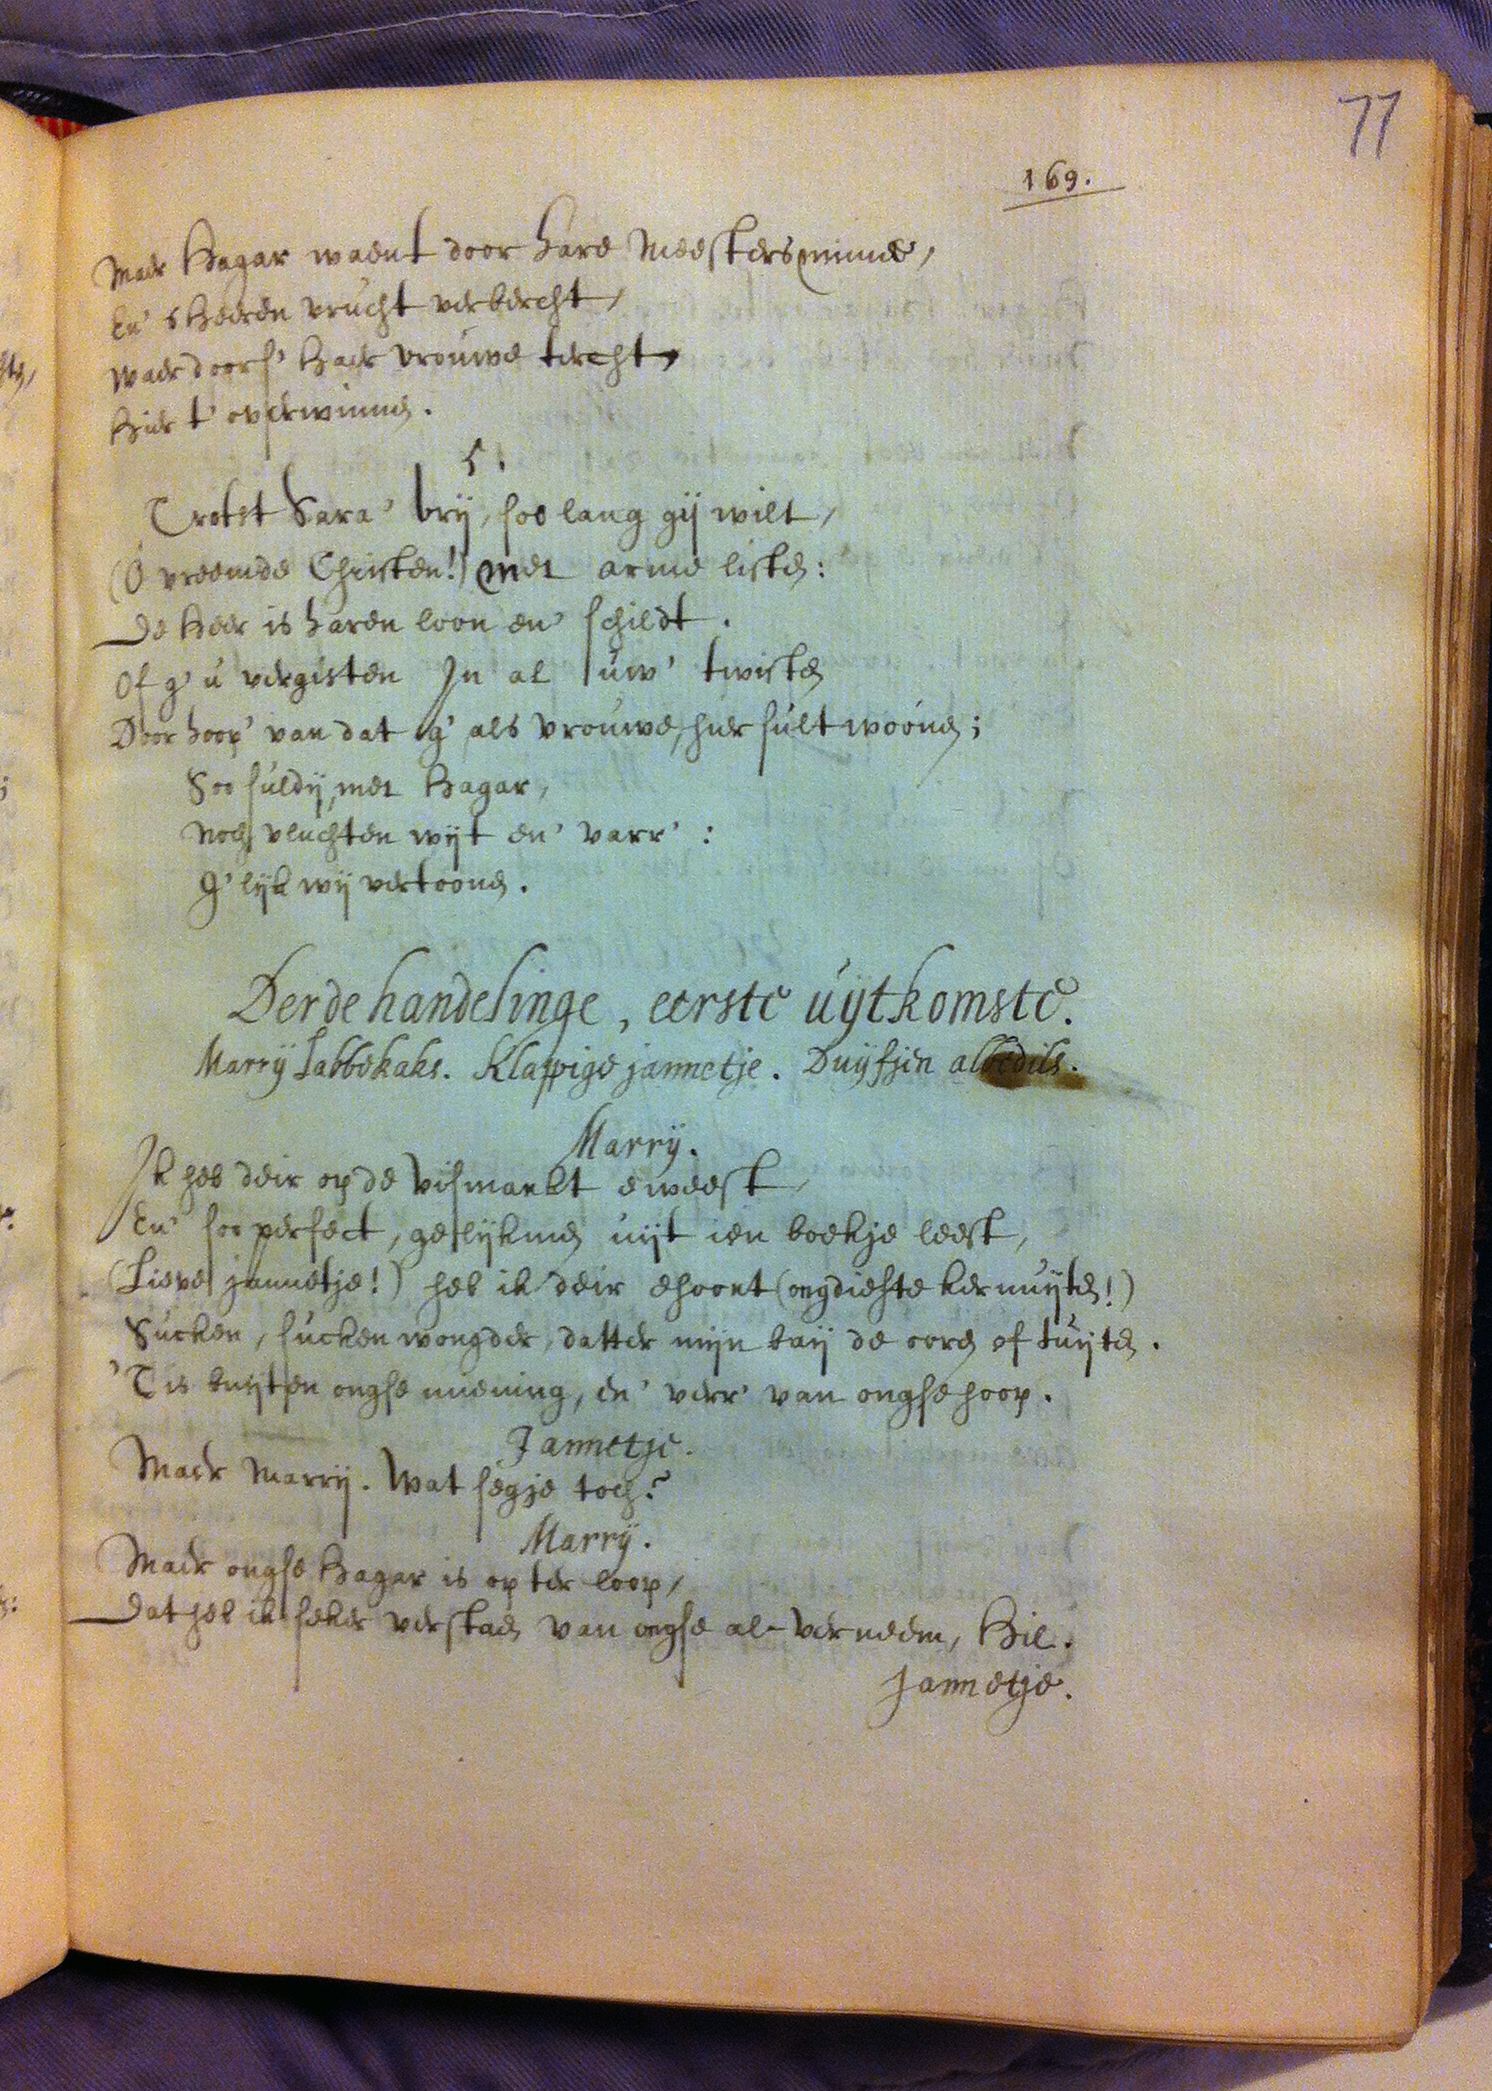 77
169.
Maer Hagar waent door hare Meesters minne,
En' sHeeren vrucht verkercht,
Waer door s' Haer Vrouwe tercht,
Hier t' overwinnen.
5.
Trotst Sara' vrij, soo lang gij wilt,
(O vreemde Christen!) met arme listen:
De Heer is haren loon en' schildt.
Of g' u vergisten In al uw' twisten
Door hoop' van dat g' als Vrouwe, hier sult woonen;
Soo suldij, met Hagar,
Noch vluchten wijt en' varr':
G'lijk wij vertoonen.
Derde handelinge, eerste uijtkomste.
Marrij Labbekaks. Klappige jannetje. Duijfjen albedils.
Marrij.
Ik heb deir op de Vismarkt eweest,
En' soo perfect, gelijkmen uijt ien boekje leest,
(Lieve jannetje!) heb ik deir ehoort (ongdiefte kernuijten!)
Sucken, sucken wongder, datter mijn baij de ooren of tuijten.
'T is buijten onghse miening, en' verr' van onghse hoop.
Jannetje.
Maer Marrij. Wat segje toch?
Marrij.
Maer onghse Hagar is op ter loop,
Dat heb ik seker verstaen van onghse al-verneem, Hil.
Jannetje.